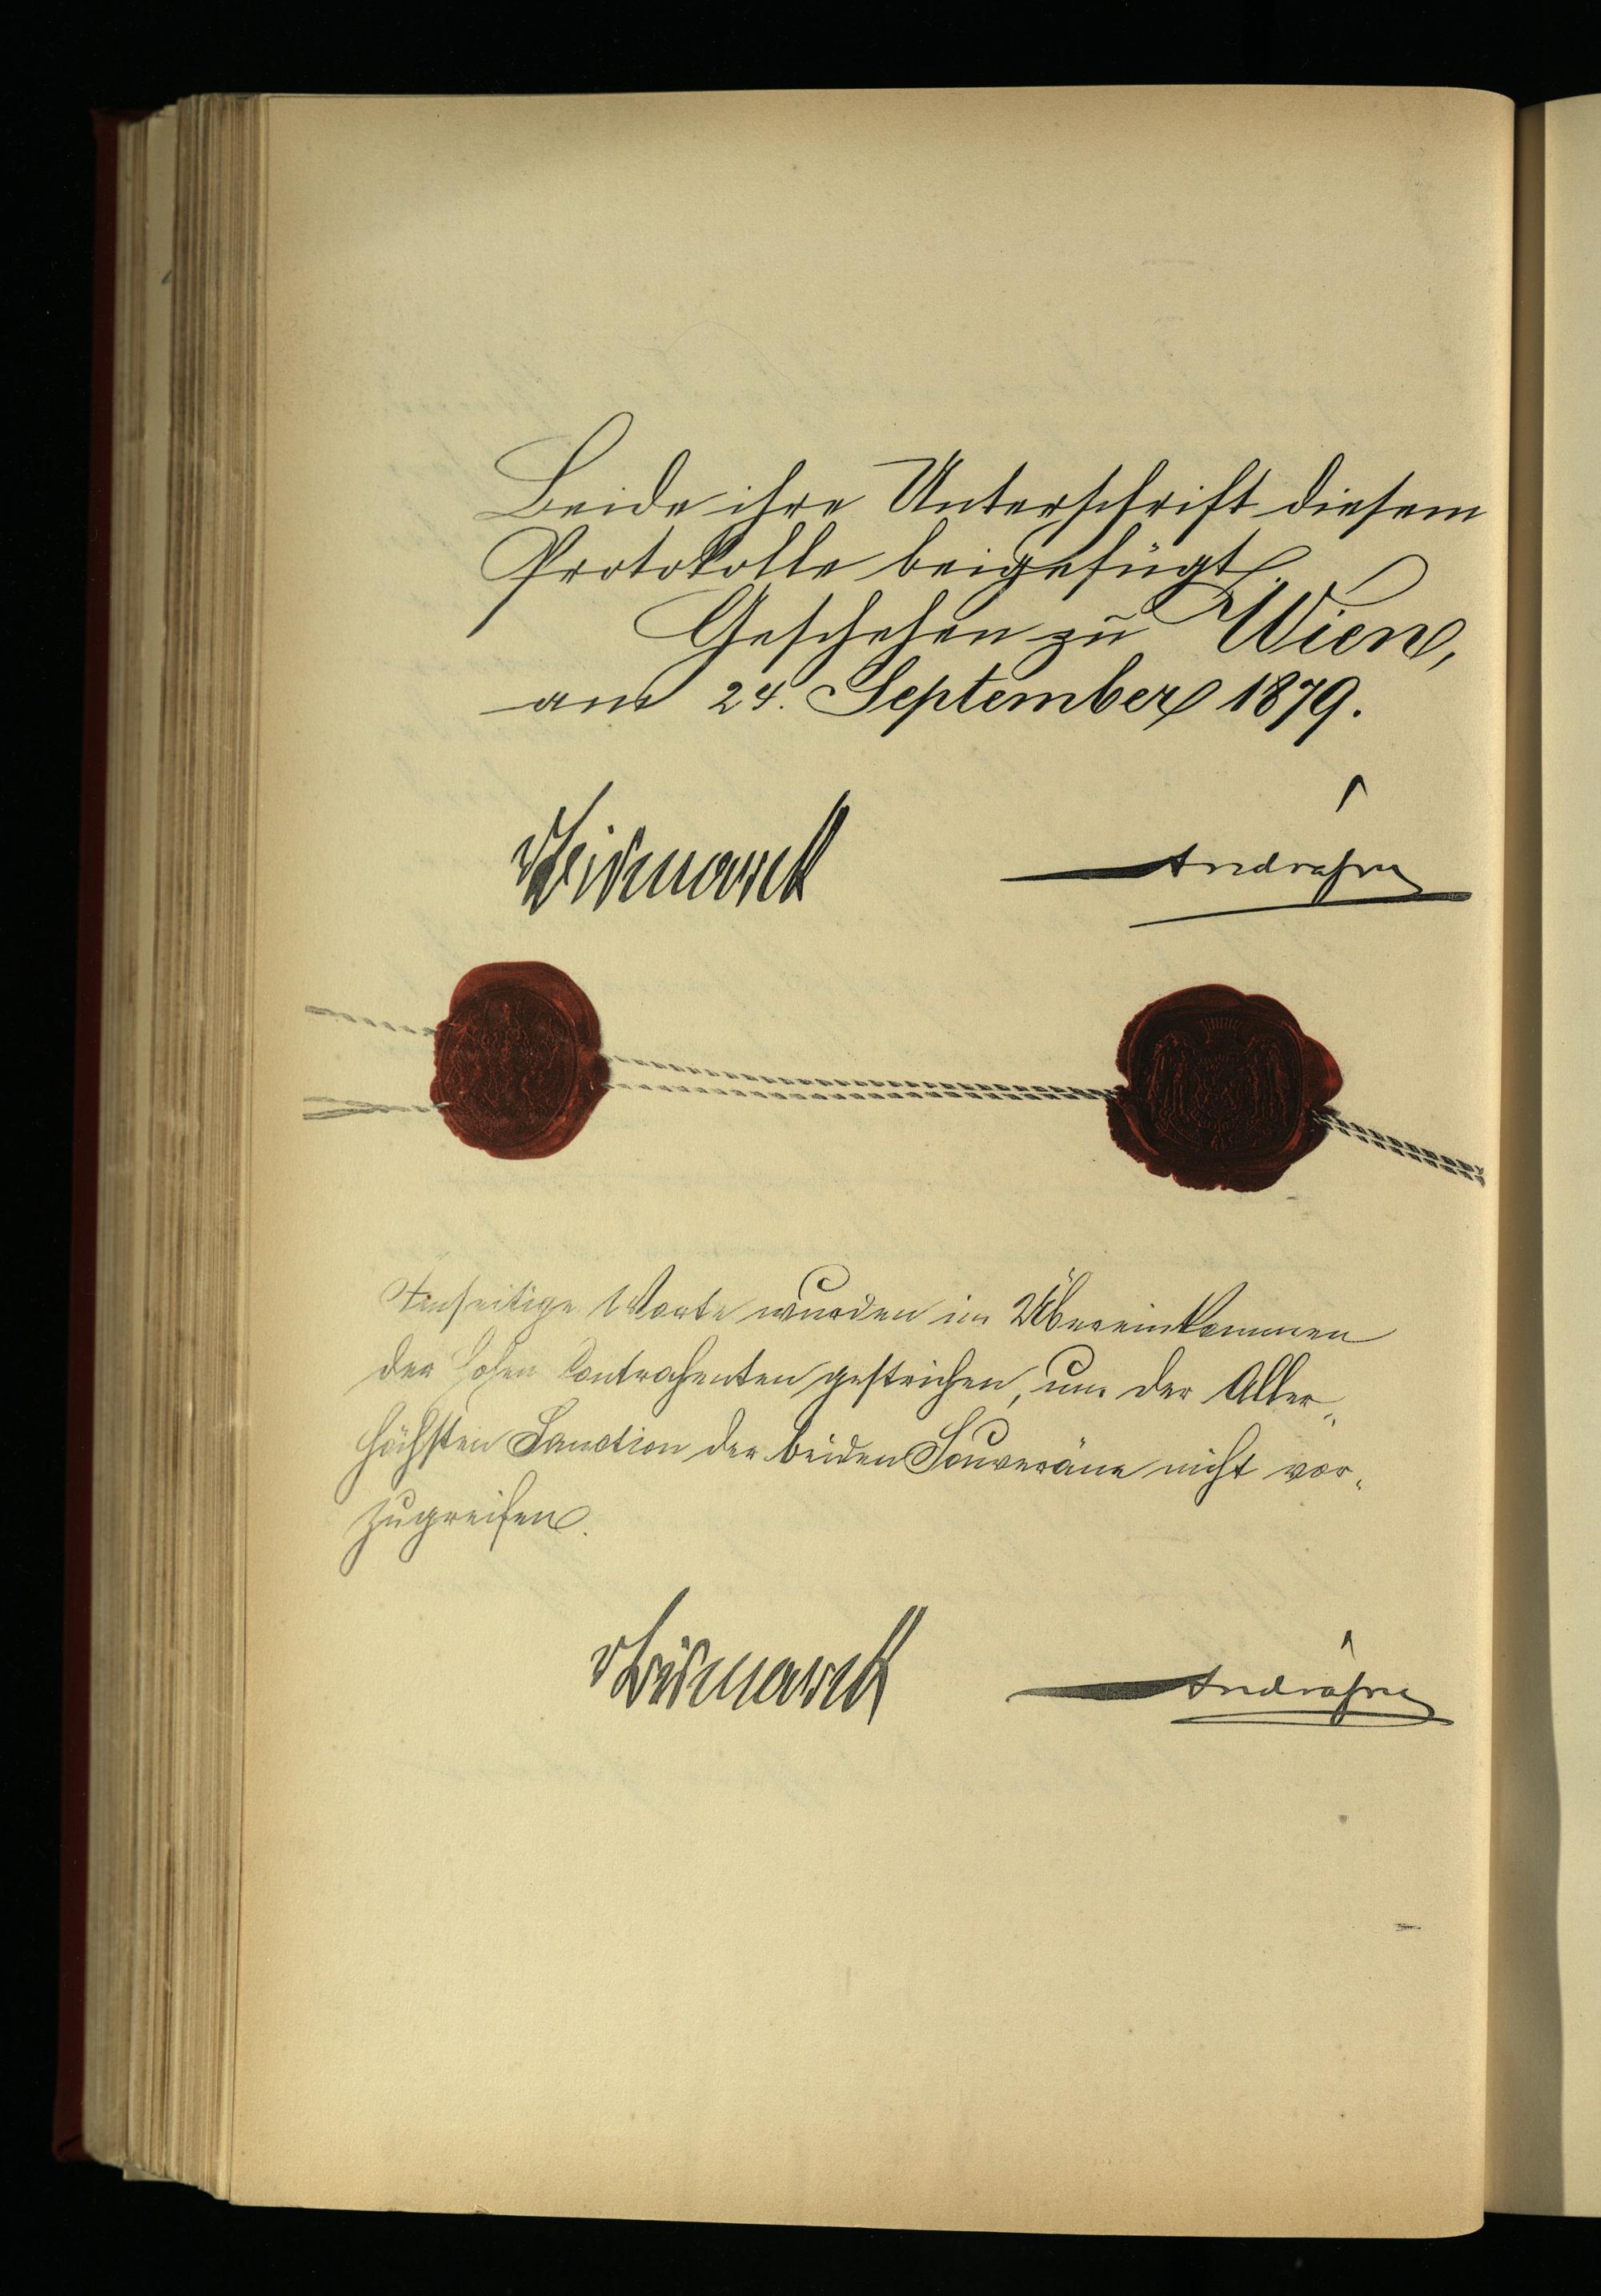 Beide ihre Unterschrift diesem
Protokolle beigefügt.
Geschehen zu Wien,
am 24. September 1879.
vBismarck
Andrássy
Jenseitige Worte wurden im Übereinkommen
der hohen Contrahenten gestrichen, um der Aller-
höchsten Sanction der beiden Souveräne nicht vor-
zugreifen.
vBismarck
Andrássy